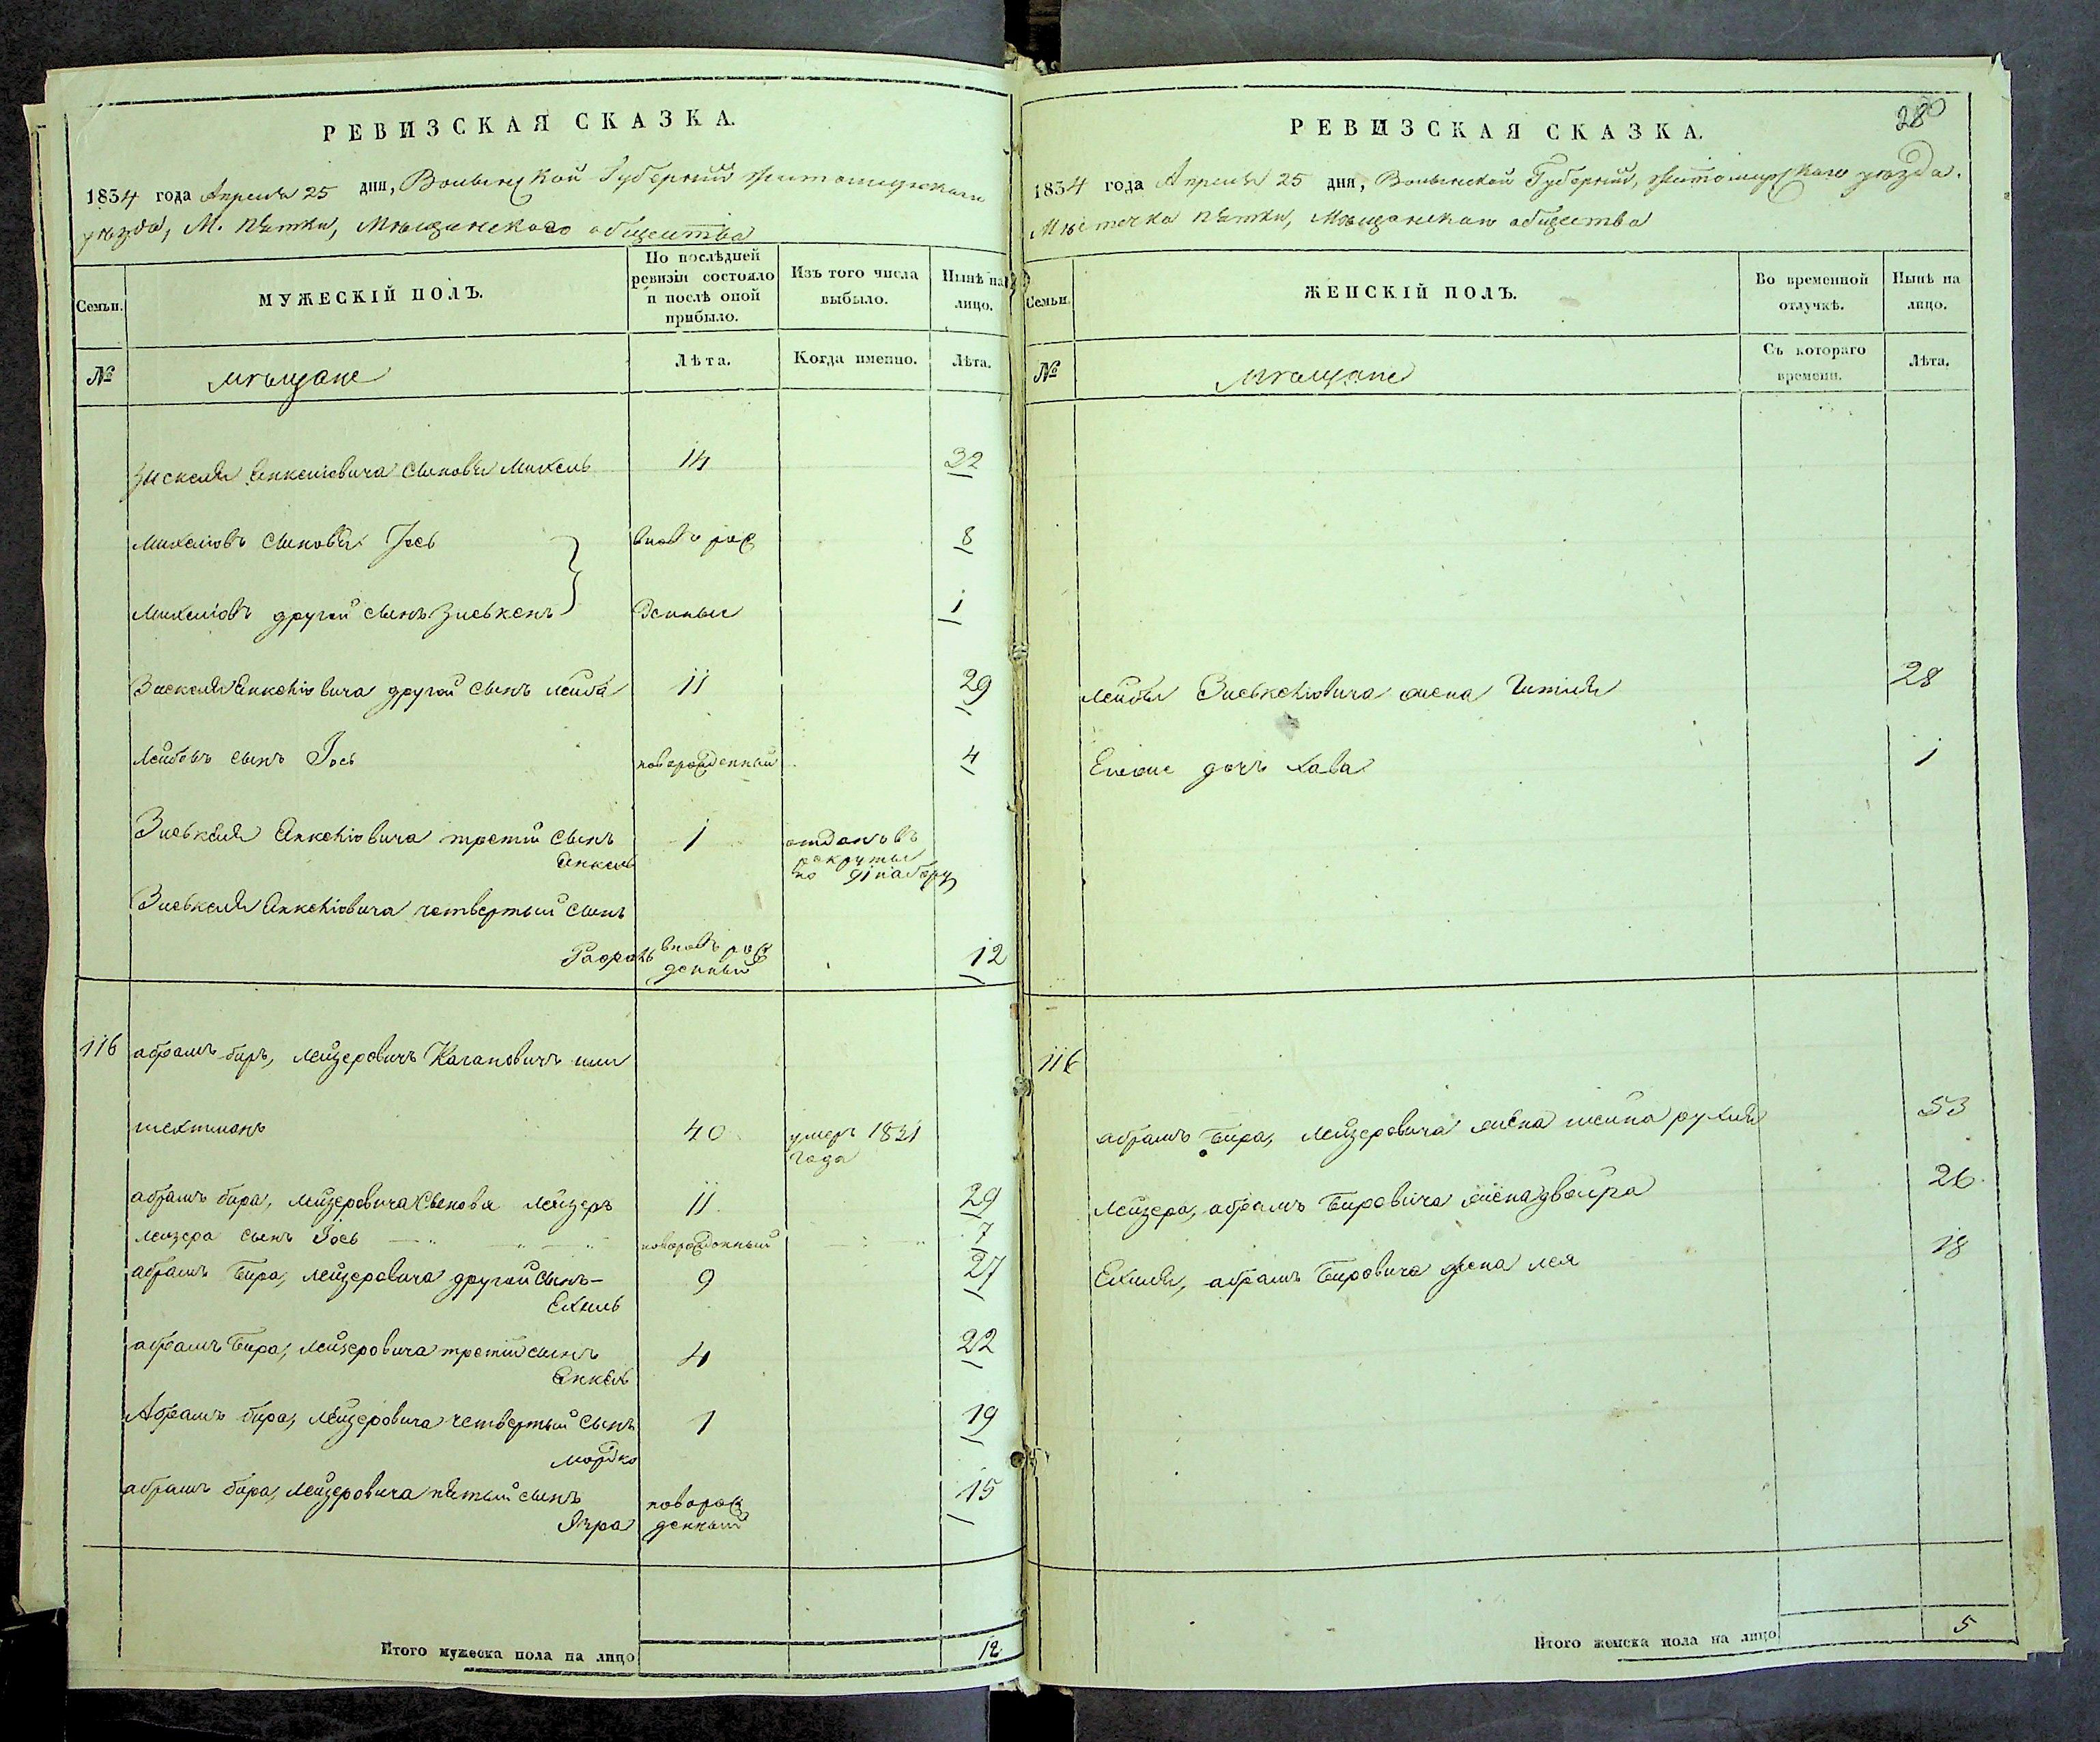 РЕВИЗСКАЯ СКАЗКА.
1834 года Апреля 25 дня, Волынской Губернии Житомирскаго
уезда, М. Пятки, Мещанскаго общества
Семьи.
МУЖЕСКІЙ ПОЛЪ.
По послѣдней
ревизіи состояло
и послѣ оной
прибыло.
Изъ того числа
выбыло.
Нынѣ на
лицо.
№
мѣщане
Лѣта.
Когда именно.
Лѣта.
Зискеля Янкелювича сыновья Михель 14 32
Михелювъ сыновья Іось вновь рож 8
Михелювъ другой сынъ Зиськель денные 1
Зискеля Янкелювича другой сынъ Лейба 11 29
Лейбовъ сынъ Іось новорожденный 4
Зиськеля Янкелювича третій сынъ 1 отданъ въ
Янкель рекруты
по 91 набору
Зиськеля Янкелювича четвертый сынъ
вновь рож
денный 12
116 абрамъ биръ, Лейзеровичъ Кагановичъ или
шехтманъ 40 умеръ 1831
года
абрамъ бира, Лейзеровича Сыновья Лейзеръ 11 29
Лейзера сынъ Іось новорожденный 7
абрамъ Бира, Лейзеровича другой сынъ- 9 27
Ехиль
абрамъ Бира, Лейзеровича третій сынъ 4 22
Янкель
Абрамъ бира, Лейзеровича четвертый сынъ 1 19
мордко
абрамъ бира, Лейзеровича пятый сынъ новорож 15
денный
Итого мужеска пола на лицо 12
280
РЕВИЗСКАЯ СКАЗКА.
1834 года Апреля 25 дня, Волынской Губерніи, Житомирскаго уѣзда.
Мѣстечка Пятки, Мѣщанскаго общества
Семьи.
ЖЕНСКІЙ ПОЛЪ.
Во временной
отлучкѣ.
Нынѣ на
лицо.
№
мѣщане
Съ котораго
времени.
Лѣта.
Лейбы Зиськелювича жена Гитля 28
Еиоже дочь Хава 1
116
абрамъ Бира, Лейзеровича жена шейна рухля 53
Лейзера, абрамъ Бировича жена двойра 26
Ехиля, абрамъ Бировича жена лея 18
Итого женска пола на лицо 5